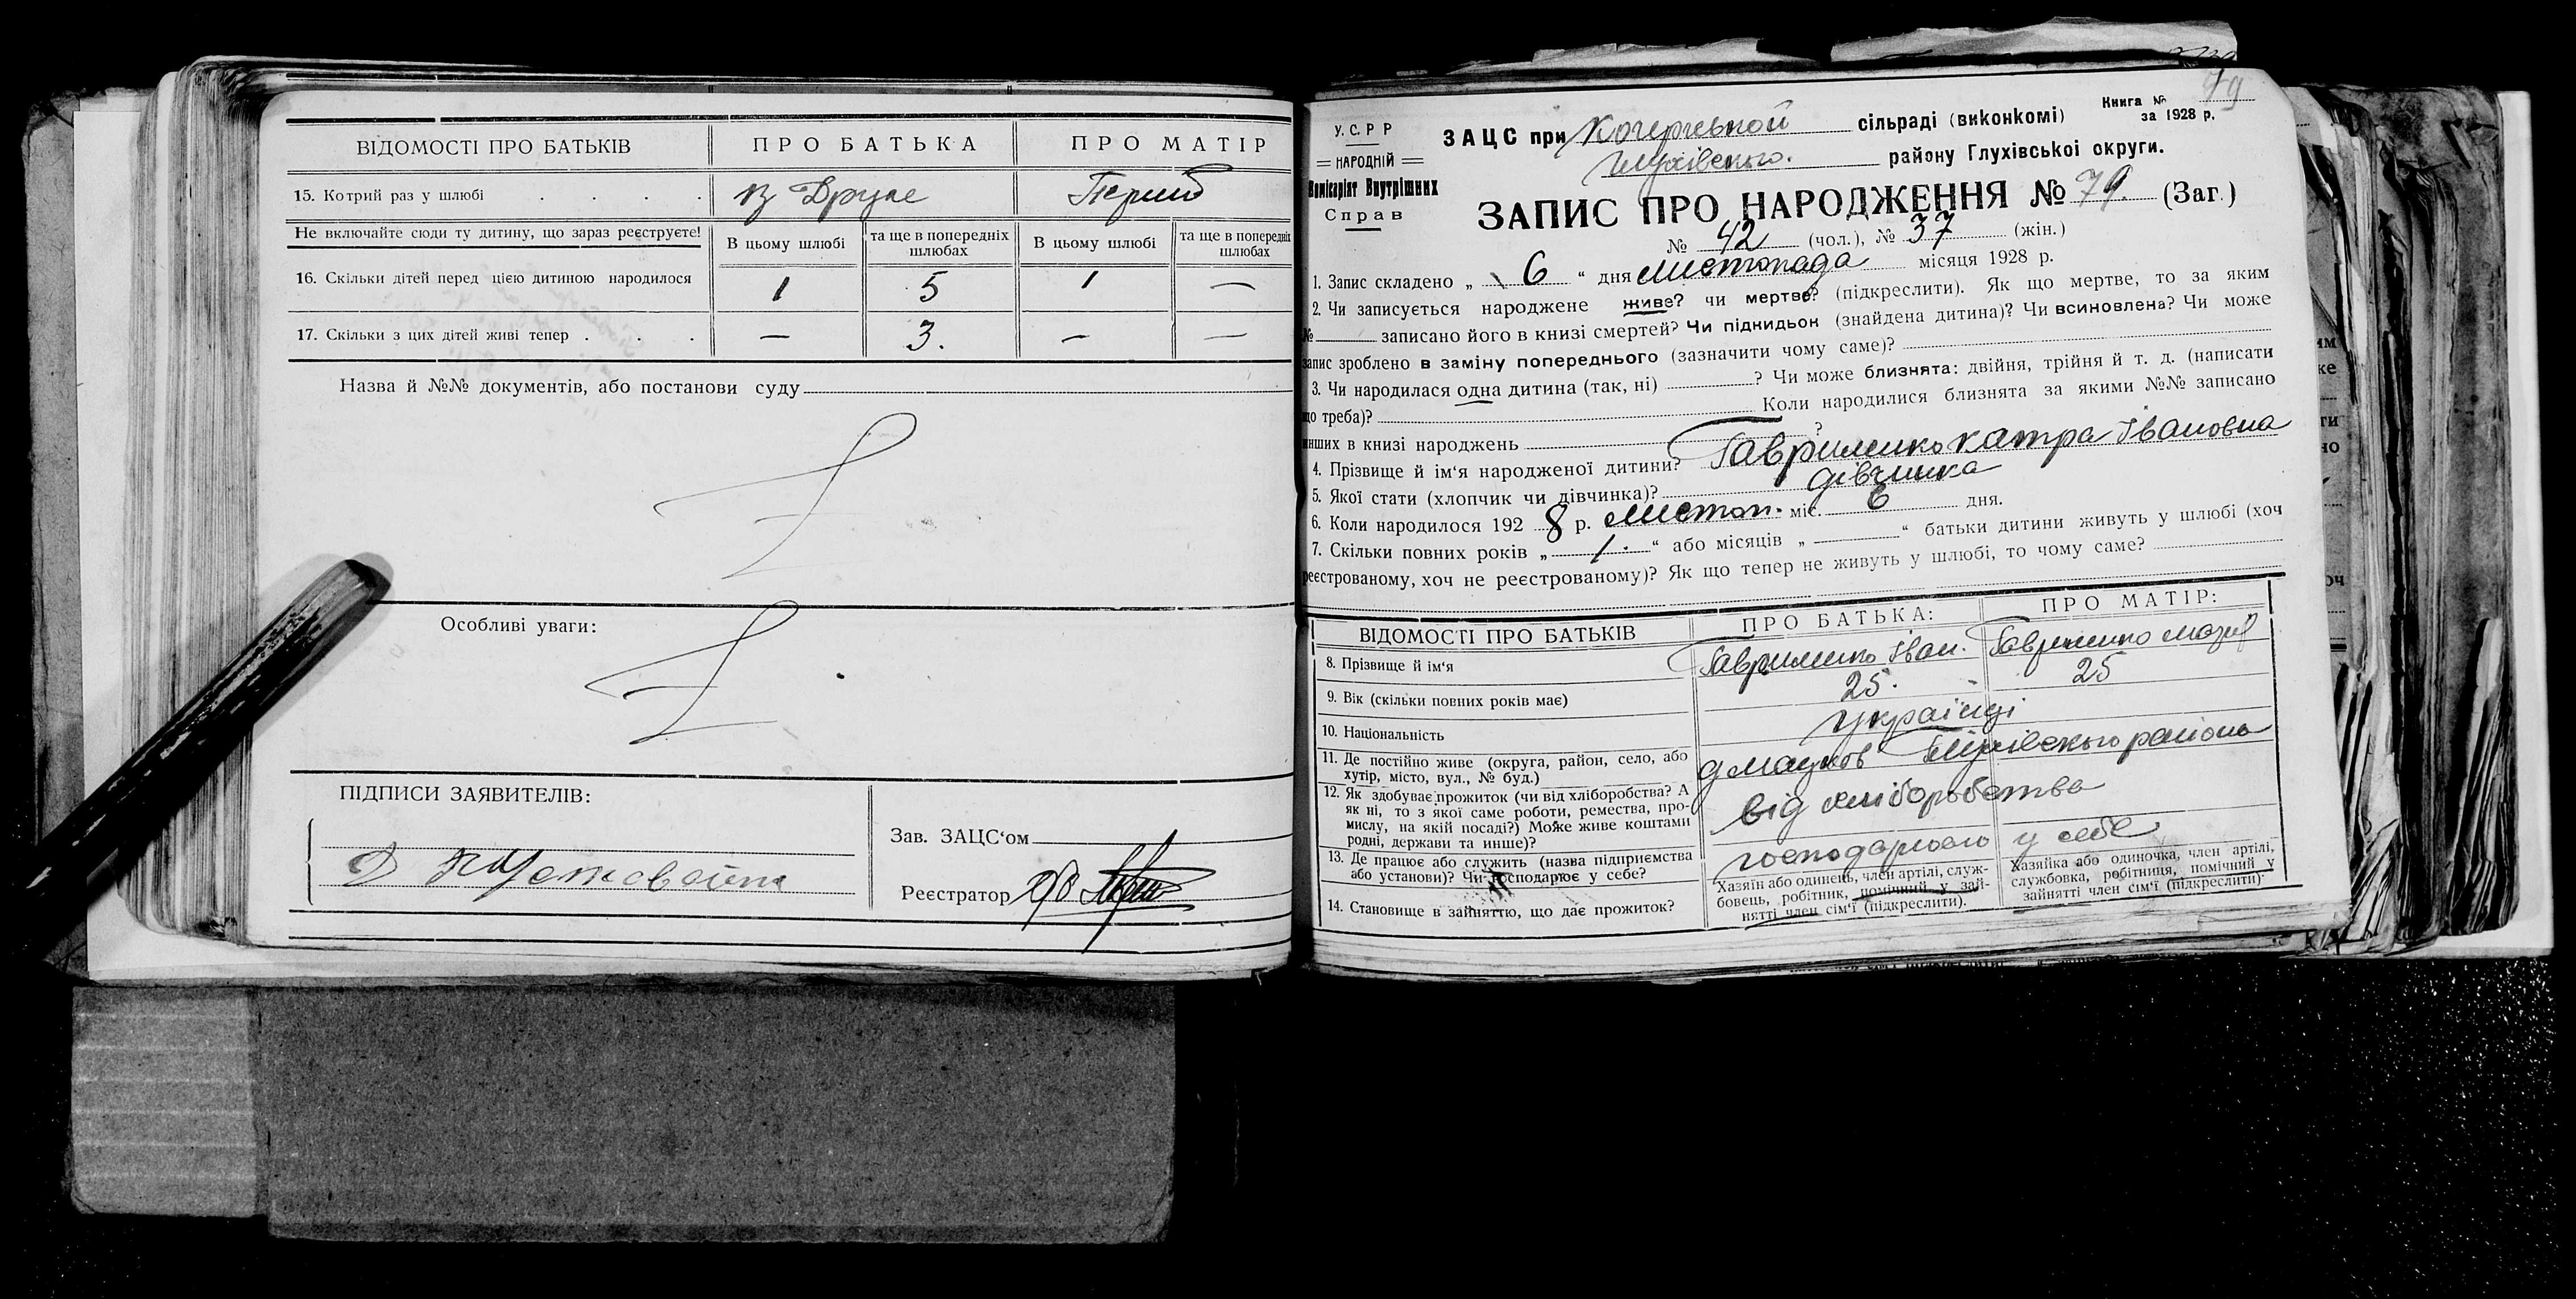 ВІДОМОСТІ ПРО БАТЬКІВ
ПРО БАТЬКА
ПРО МАТІР
15. Котрий раз у шлюбі . . . .
Друге
Перший
Не включайте сюди ту дитину, що зараз реєструєте!
В цьому шлюбі
та ще в попередніх шлюбах
В цьому шлюбі
та ще в попередніх шлюбах
16. Скільки дітей перед цією дитиною народилося
1
5
1
—
17. Скільки з цих дітей живі тепер . . .
—
3.
—
—
Назва й №№ документів, або постанови суду
Особливі уваги:
ПІДПИСИ ЗАЯВИТЕЛІВ:
Зав. ЗАЦС‘ом
Реєстратор
79
Книга №
за 1928 р.
У.С.Р.Р
НАРОДНІЙ
Комісаріят Внутрішних
Справ
ЗАЦС при сільраді (виконкомі)
Глухівського. району Глухівської округи.
ЗАПИС ПРО НАРОДЖЕННЯ № 79. (Заг.)
№ 42 (чол.), № 37 (жін.)
1. Запис складено „ 6 “ дня листопада місяця 1928 р.
2. Чи записується народжене живе? чи мертве? (підкреслити). Як що мертве, то за яким
№ записано його в книзі смертей? Чи підкидьок (знайдена дитина)? Чи всиновлена? Чи може
запис зроблено в заміну попереднього (зазначити чому саме)?
3. Чи народилася одна дитина (так, ні) ? Чи може близнята: двійня, трійня й т. д. (написати
що треба)? Коли народилися близнята за якими №№ записано
инших в книзі народжень ?
4. Прізвище й ім‘я народженої дитини? Гавриленко Катра Івановна
5. Якої стати (хлопчик чи дівчинка)? дівчинка
6. Коли народилося 192 8 р. листоп. міс. 6 дня.
7. Скільки повних років „ 1. “ або місяців „ — “ батьки дитини живуть у шлюбі (хоч
реєстрованому, хоч не реєстрованому)? Як що тепер не живуть у шлюбі, то чому саме?
ВІДОМОСТІ ПРО БАТЬКІВ
ПРО БАТЬКА:
ПРО МАТІР:
8. Прізвище й ім‘я
Гавриленко Іван.
Гавриленко
9. Вік (скільки повних років має)
25.
25
10. Національність
українці
11. Де постійно живе (округа, район, село, або
хутір, місто, вул., № буд.)
Глухівського району
12. Як здобуває прожиток (чи від хліборобства? А
як ні, то з якої саме роботи, ремества, про-
мислу, на якій посаді?) Може живе коштами
родні, держави та инше)?
від хліборобства
13. Де працює або служить (назва підприємства
або установи)? Чи господарює у себе?
господарюють у себе
14. Становище в зайняттю, що дає прожиток?
Хазяїн або одинець, член артілі, служ-
бовець, робітник, помічний у зай-
нятті член сім‘ї (підкреслити).
Хазяйка або одиночка, член артілі,
службовка, робітниця, помічний у
зайнятті член сім‘ї (підкреслити)